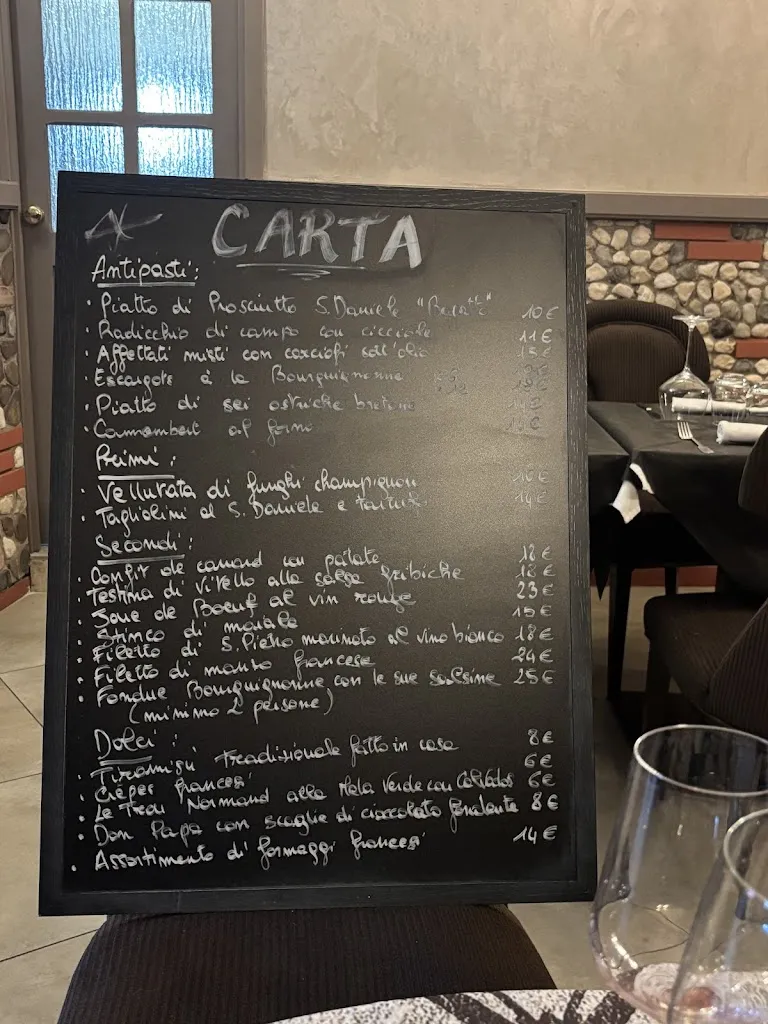 CARTA
Antipasti:
· Piatto di Prosciutto S. Daniele 10€
· Radicchio di campo con cicciole 11€
· Affettati misti con carciofi sott'olio 15€
· Escargots à la Bourguignonne
· Piatto di sei ostriche bretone
· Camembert al forno
Primi:
· Vellutata di funghi champignon
· Tagliolini al S. Daniele e tartufo 14€
Secondi:
· Confit de canard con patate 18€
· Testina di Vitello alla salsa gribiche 18€
· Joue de Boeuf al vin rouge 23€
· Stinco di maiale 15€
· Filetto di S. Pietro marinato al vino bianco 18€
· Filetto di manzo francese 24€
· Fondue Bourguignonne con le sue salsine 25€
(minimo 2 persone)
Dolci:
· Tiramisù tradizionale fatto in casa 8€
· Crêpes francesi 6€
· Le Trou Normand alla Mela Verde con Calvados 6€
· Don Papa con scaglie di cioccolato fondente 8€
· Assortimento di formaggi francesi 14€